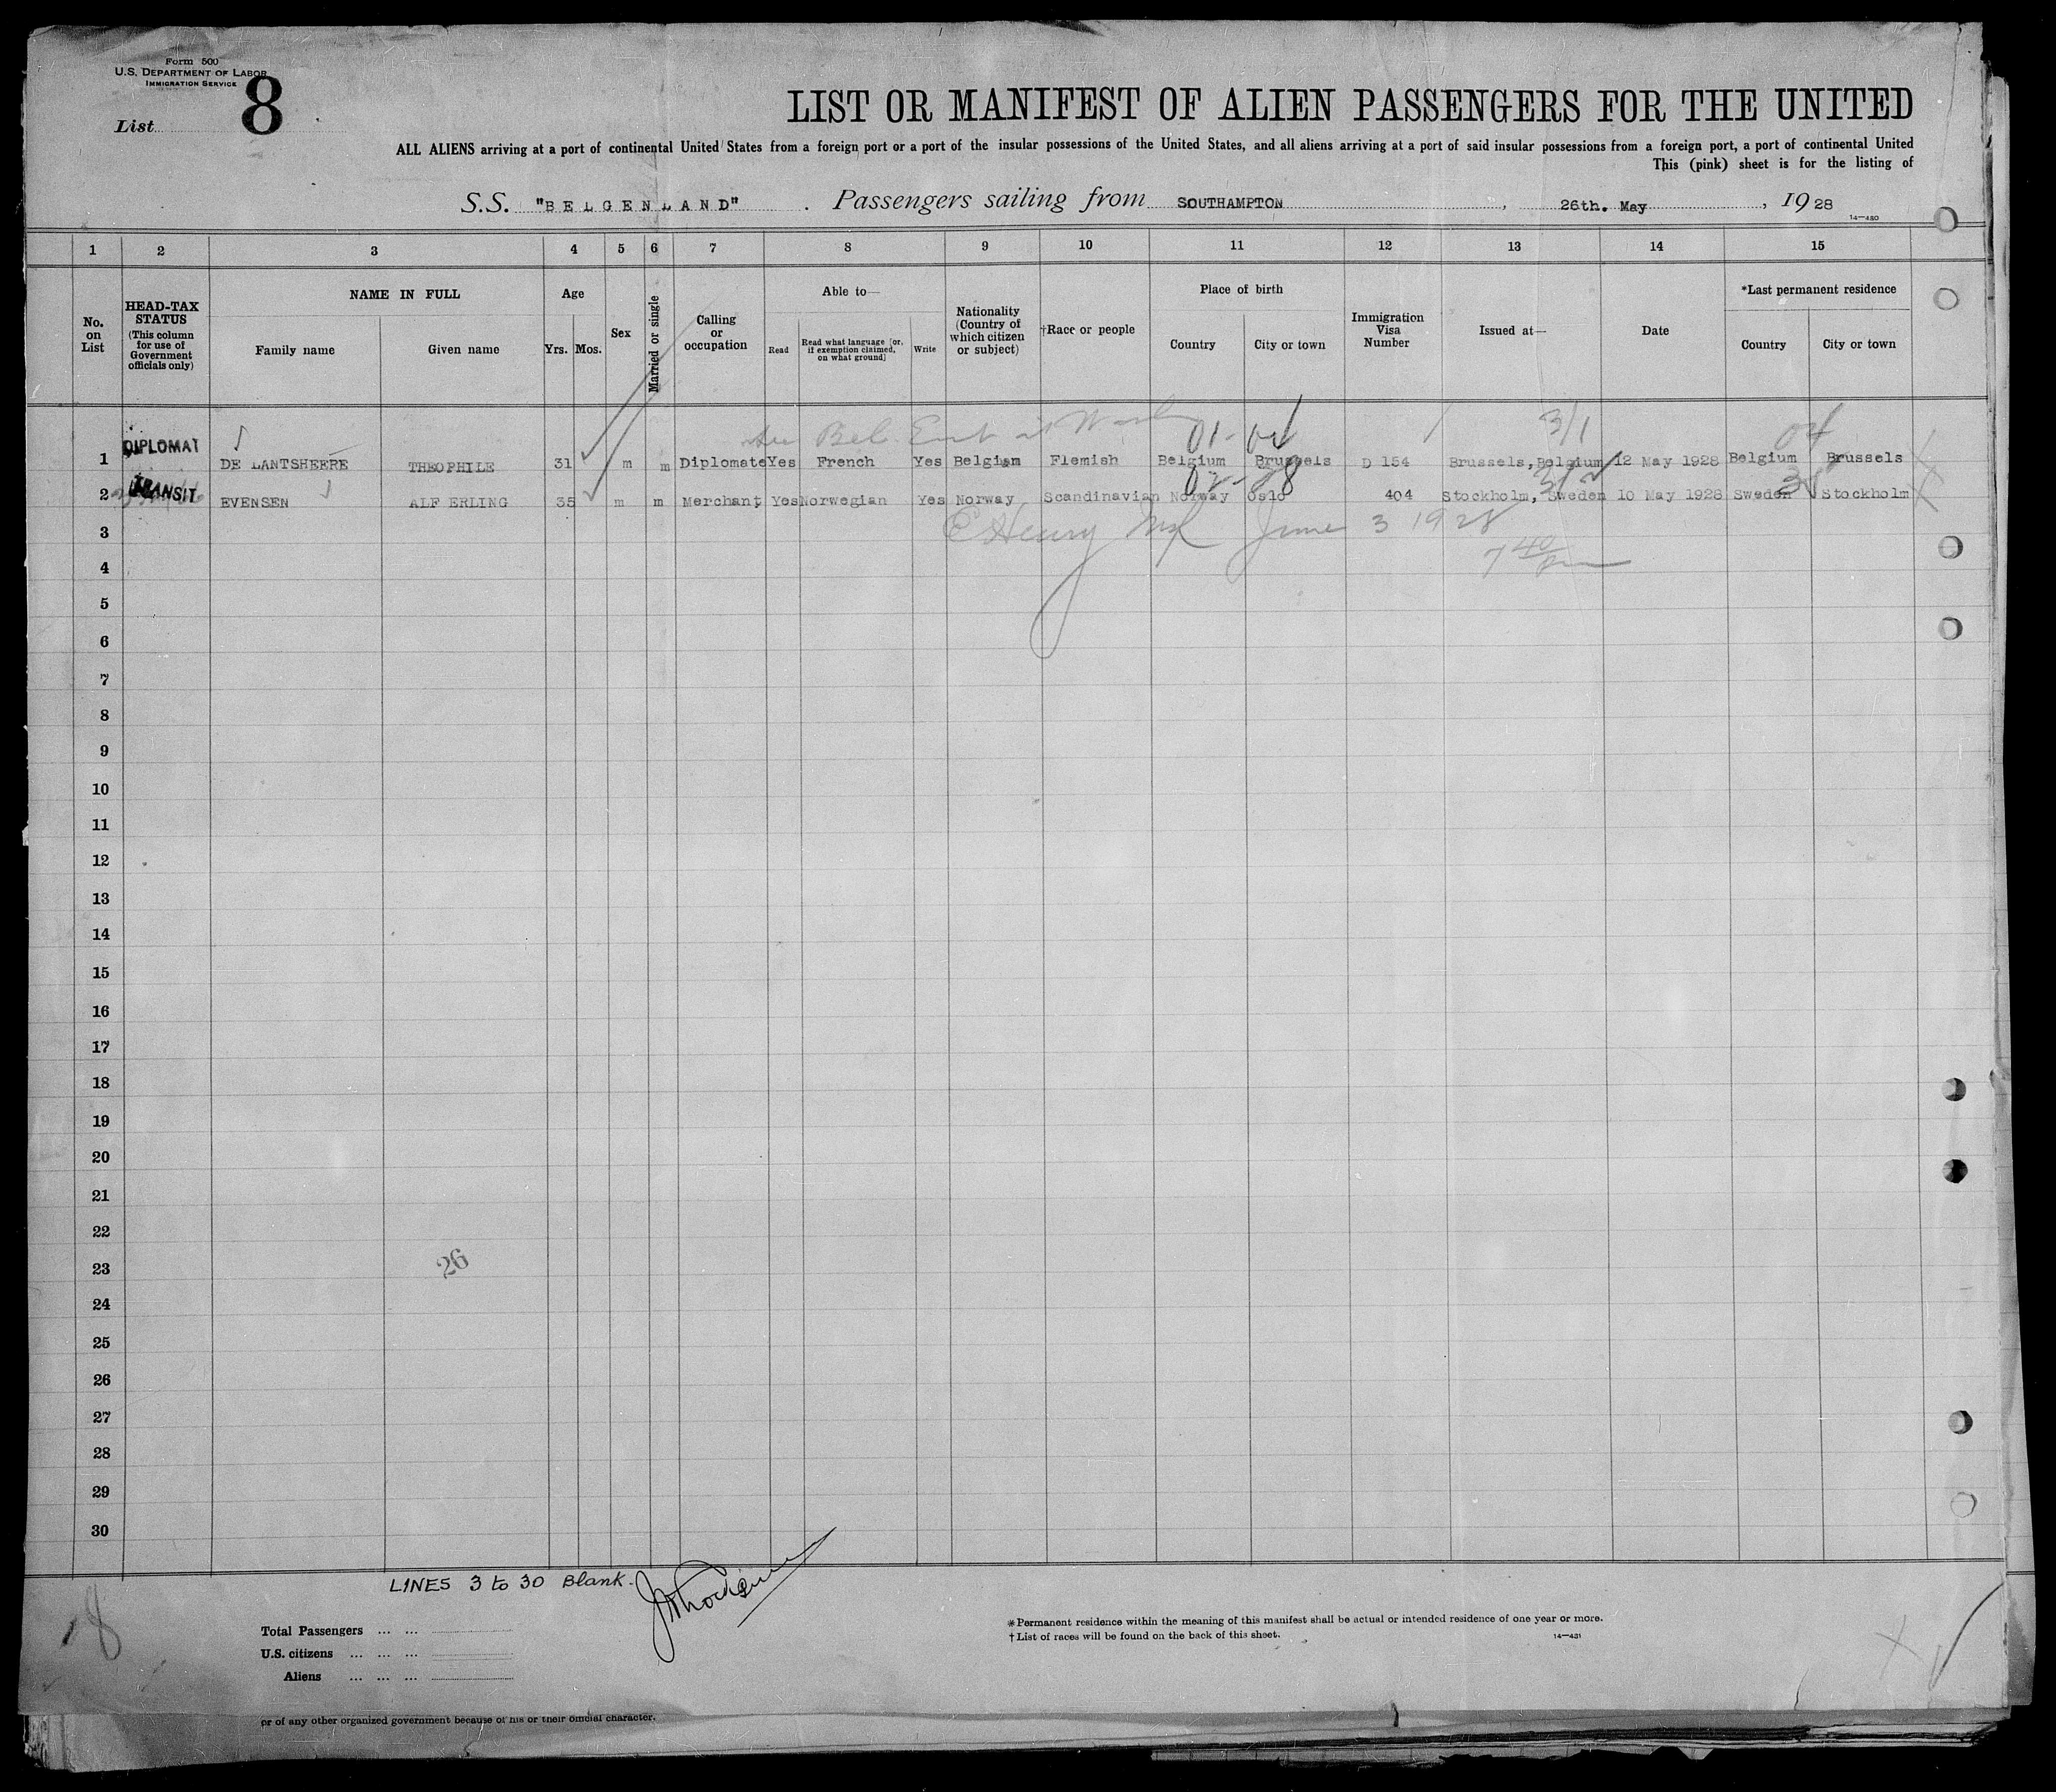 Form 500
U.S. DEPARTMENT OF LABOR
IMMIGRATION SERVICE
List 8
LIST OR MANIFEST OF ALIEN PASSENGERS FOR THE UNITED
ALL ALIENS arriving at a port of continental United States from a foreign port or a port of the insular possessions of the United States, and all aliens arriving at a port of said insular possessions from a foreign port, a port of continental United
This (pink) sheet is for the listing of
S.S. "BELGENLAND" . Passengers sailing from SOUTHAMPTON , 26th. May , 1928
14—480
1 2 3 4 5 6 7 8 9 10 11 12 13 14 15
No. on List
HEAD-TAX STATUS (This column for use of Government officials only)
NAME IN FULL
Family name Given name
Age
Yrs. Mos.
Sex
Married or single
Calling or occupation
Able to—
Read Read what language [or, if exemption claimed, on what ground] Write
Nationality (Country of which citizen or subject)
†Race or people
Place of birth
Country City or town
Immigration Visa Number
Issued at—
Date
*Last permanent residence
Country City or town
01-04 3/1 04
1 DIPLOMAT DE LANTSHEERE THEOPHILE 31 m m Diplomate Yes French Yes Belgian Flemish Belgium Brussels D 154 Brussels, Belgium 12 May 1928 Belgium Brussels
2 TRANSIT EVENSEN ALF ERLING 35 m m Merchant Yes Norwegian Yes Norway Scandinavian Norway Oslo 404 Stockholm, Sweden 10 May 1928 Sweden Stockholm
3 June 3 1928
4 7 40
5
6
7
8
9
10
11
12
13
14
15
16
17
18
19
20
21
22
23 26
24
25
26
27
28
29
30
LINES 3 to 30 Blank.
8
Total Passengers ... ...
U.S. citizens ... ... ...
Aliens ... ... ...
*Permanent residence within the meaning of this manifest shall be actual or intended residence of one year or more.
†List of races will be found on the back of this sheet.
14—431
or of any other organized government because of his or their official character.